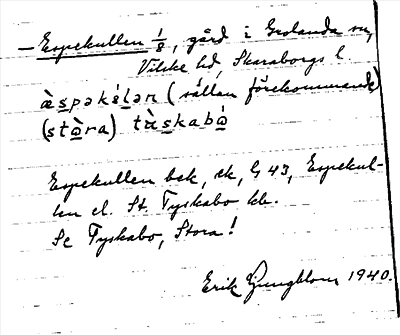 — Espekullen 1/8, gård i Grolanda sn,
Vilske hd, Skaraborgs l
æ̀spəkɛ́lən (sällan förekommande)
(stòra) tùskabó
Espekullen bek, ek, G 43, Espekul-
len el. St. Tyskabo kb.
Se Tyskabo, Stora!
Erik Ljungblom 1940.